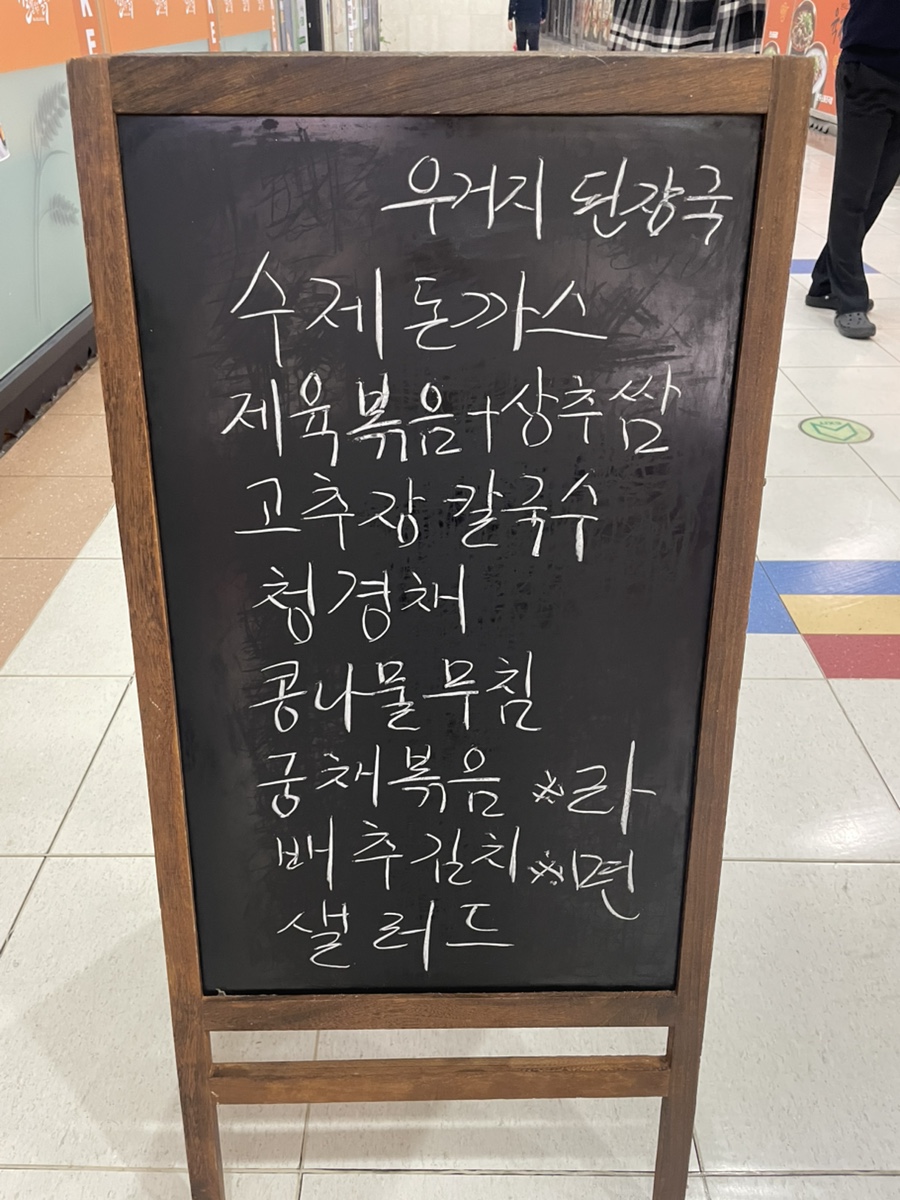 우거지 된장국
수제 돈까스
제육볶음+상추쌈
고추장 칼국수
청경채
콩나물무침
궁채볶음 ※라
배추김치 ※면
샐러드